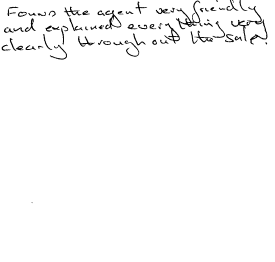 Found the agent very friendly
and explained everything very
clearly throughout the sale.